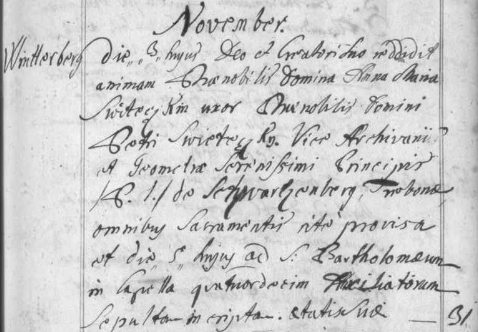 November.
Wintterberg die 3 hujus Deo et Creatori suo reddidit
animam Prænobilis Domina Anna Maria
uxor Prænobilis Domini
Petri Swietecky. Vice Archivarii
et Geometræ Serenissimi Principis
/P. T./ de Schwarzenberg, Trebonæ,
omnibus Sacramentis rite provisa
et die 5 hujus ad S: Bartholomæum
in Capella quatuordecim Auxiliatorum
sepulta in cripta. ætatis suæ 31